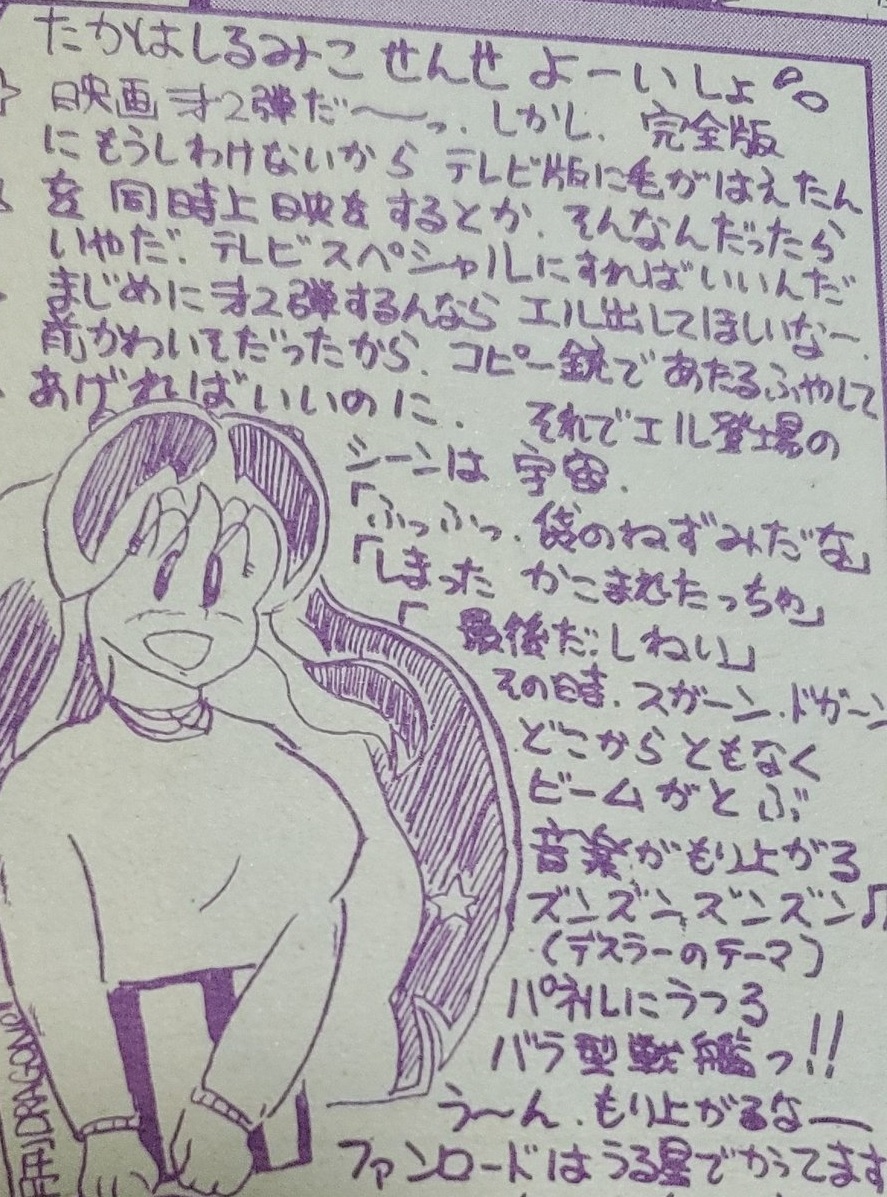 たかはしるみこ せんせ よーいしょ
映画才2弾だ〜〜っ、しかし、完全版
にもうしわけないから テレビ版に毛がはえたん
を 同時上映をするとか、そんなんだったら
いやだ、テレビスペシャルにすればいいんだ
まじめに才2弾するんなら エル出してほしいなー、
前かわいそだったから、コピー銃であたるふやして
あげればいいのに、 それでエル登場の
シーンは 宇宙、
「ふっふっ、袋のねずみだな」
「しまった かこまれたっちゃ」
「 最後だ、しねい」
その時、スガーン、ドガーン
どこからともなく
ビームがとぶ
音楽がもり上がる
ズンズン、ズンズン♫
(デスラーのテーマ)
パネルにうつる
バラ型戦艦っ!!
う〜ん、もり上がるなー
ファンロードはうる星でかってます